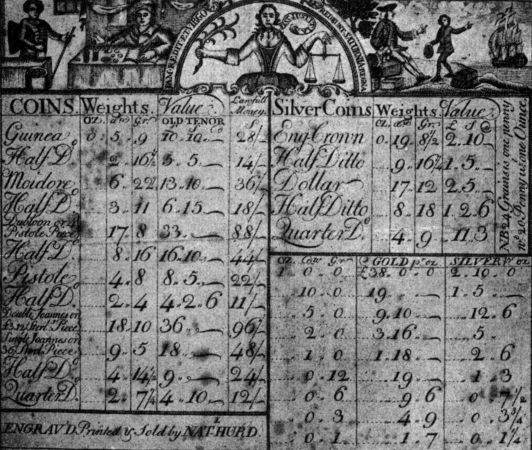 COINS. Weights. Value Lawfull
OZ. dwt Grs OLD TENOR Money.
Guinea 0. 5. 9 10.10 28/
Half Do. 2. 16½ 5. 5. 14/
Moidore 6. 22½ 13.10 36/
Half Do. 3. 11 6.15 18/
Pistole Piece 17. 8 33. 88/
Half Do. 8. 16 16.10 44/
Pistole 4. 8 8. 5. 22/
Half D. 2. 4 4. 2. 6 11/
Double Joannes or
£3.12 Sterl. Piece 18. 10 36. 96/
Single Joannes or
36/ Sterl. Piece 9. 5 18 48/
Half Do. 4. 14½ 9. 24/
Quarter D. 2. 7¼ 4. 10. 12/
ENGRAV'D Printed & Sold by NAT. HURD.
Silver Coins Weights. Value
£ S D
Eng. Crown 0. 19. 8½ 2. 10.
Half Ditto 9. 16¼ 1. 5.
Dollar 17. 12 2. 5.
Half Ditto 8. 18 1. 2. 6
Quarter Do. 4. 9. 11.3
NB 24 Grains one penny
OZ. Gr. GOLD pr. oz SILVER pr. oz
1. 0. 0 £38. 0. 0. 2. 10. 0.
10. 0 19. 1. 5.
5. 0 9. 10. 12. 6
2. 0 3. 16. 5
1. 0 1. 18. 2. 6
0. 12 19. 1. 3
0. 6 9. 6 0. 7½
0. 3 4. 9 0. 3¾
0. 1 1. 7 0. 1¼